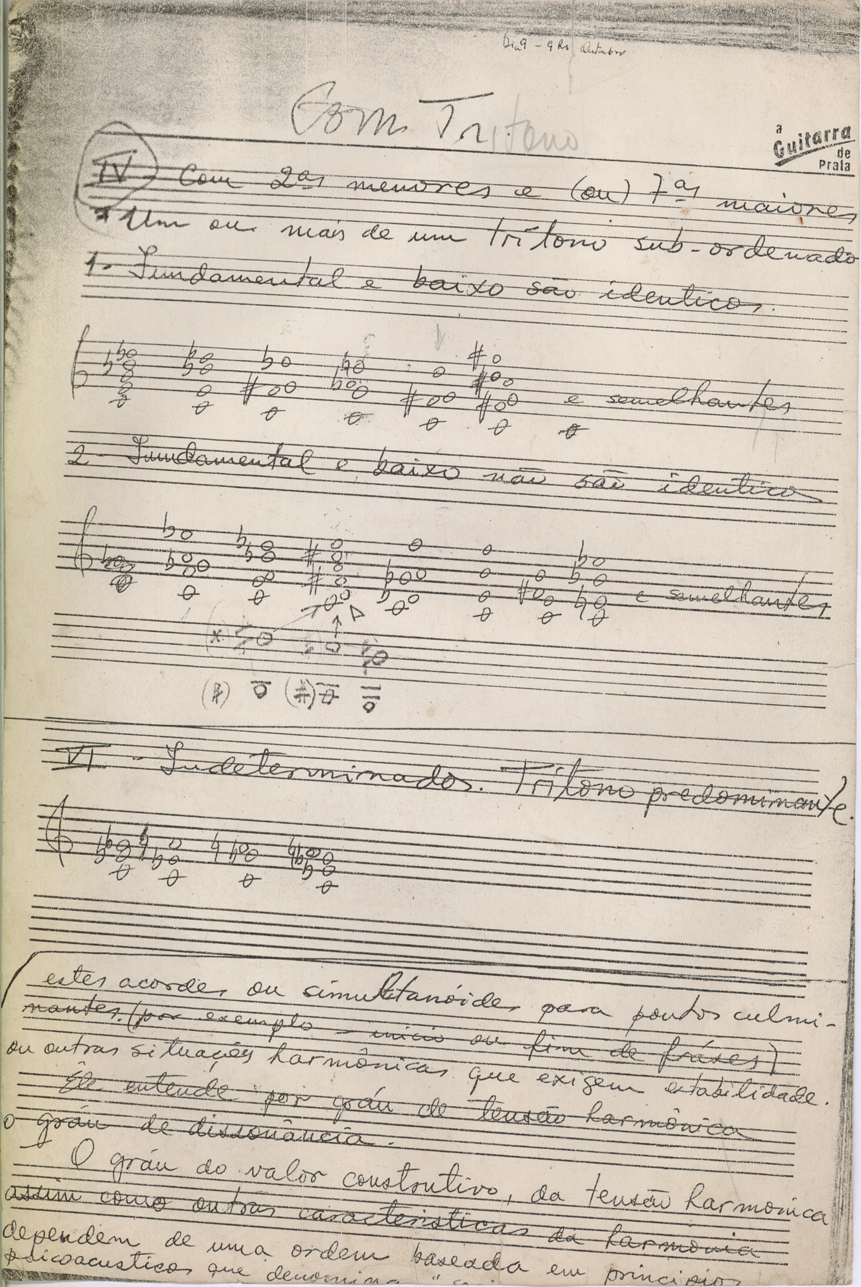 Dia 9 - 9 hs outubro
Com Tritono
a
Guitarra
de
Prata
IV - Com 2as menores e (ou) 7as maiores
* Um ou mais de um trítono sub-ordenado
1- Fundamental e baixo são identicos.
e semelhantes
2- Fundamental e baixo não são identico
e semelhantes
VI - Indeterminados. Trítono predominante.
estes acordes ou simultanóides para pontos culmi-
nantes. (por exemplo - inicio ou fim de fráses)
ou outras situações harmônicas que exigem estabilidade.
Ele entende por gráu de tensão harmônica
o gráu de dissonância.
O gráu do valor construtivo, da tensão harmonica
assim como outras caracteristicas da harmonia
dependem de uma ordem baseada em principios
psicoacusticos que denomina